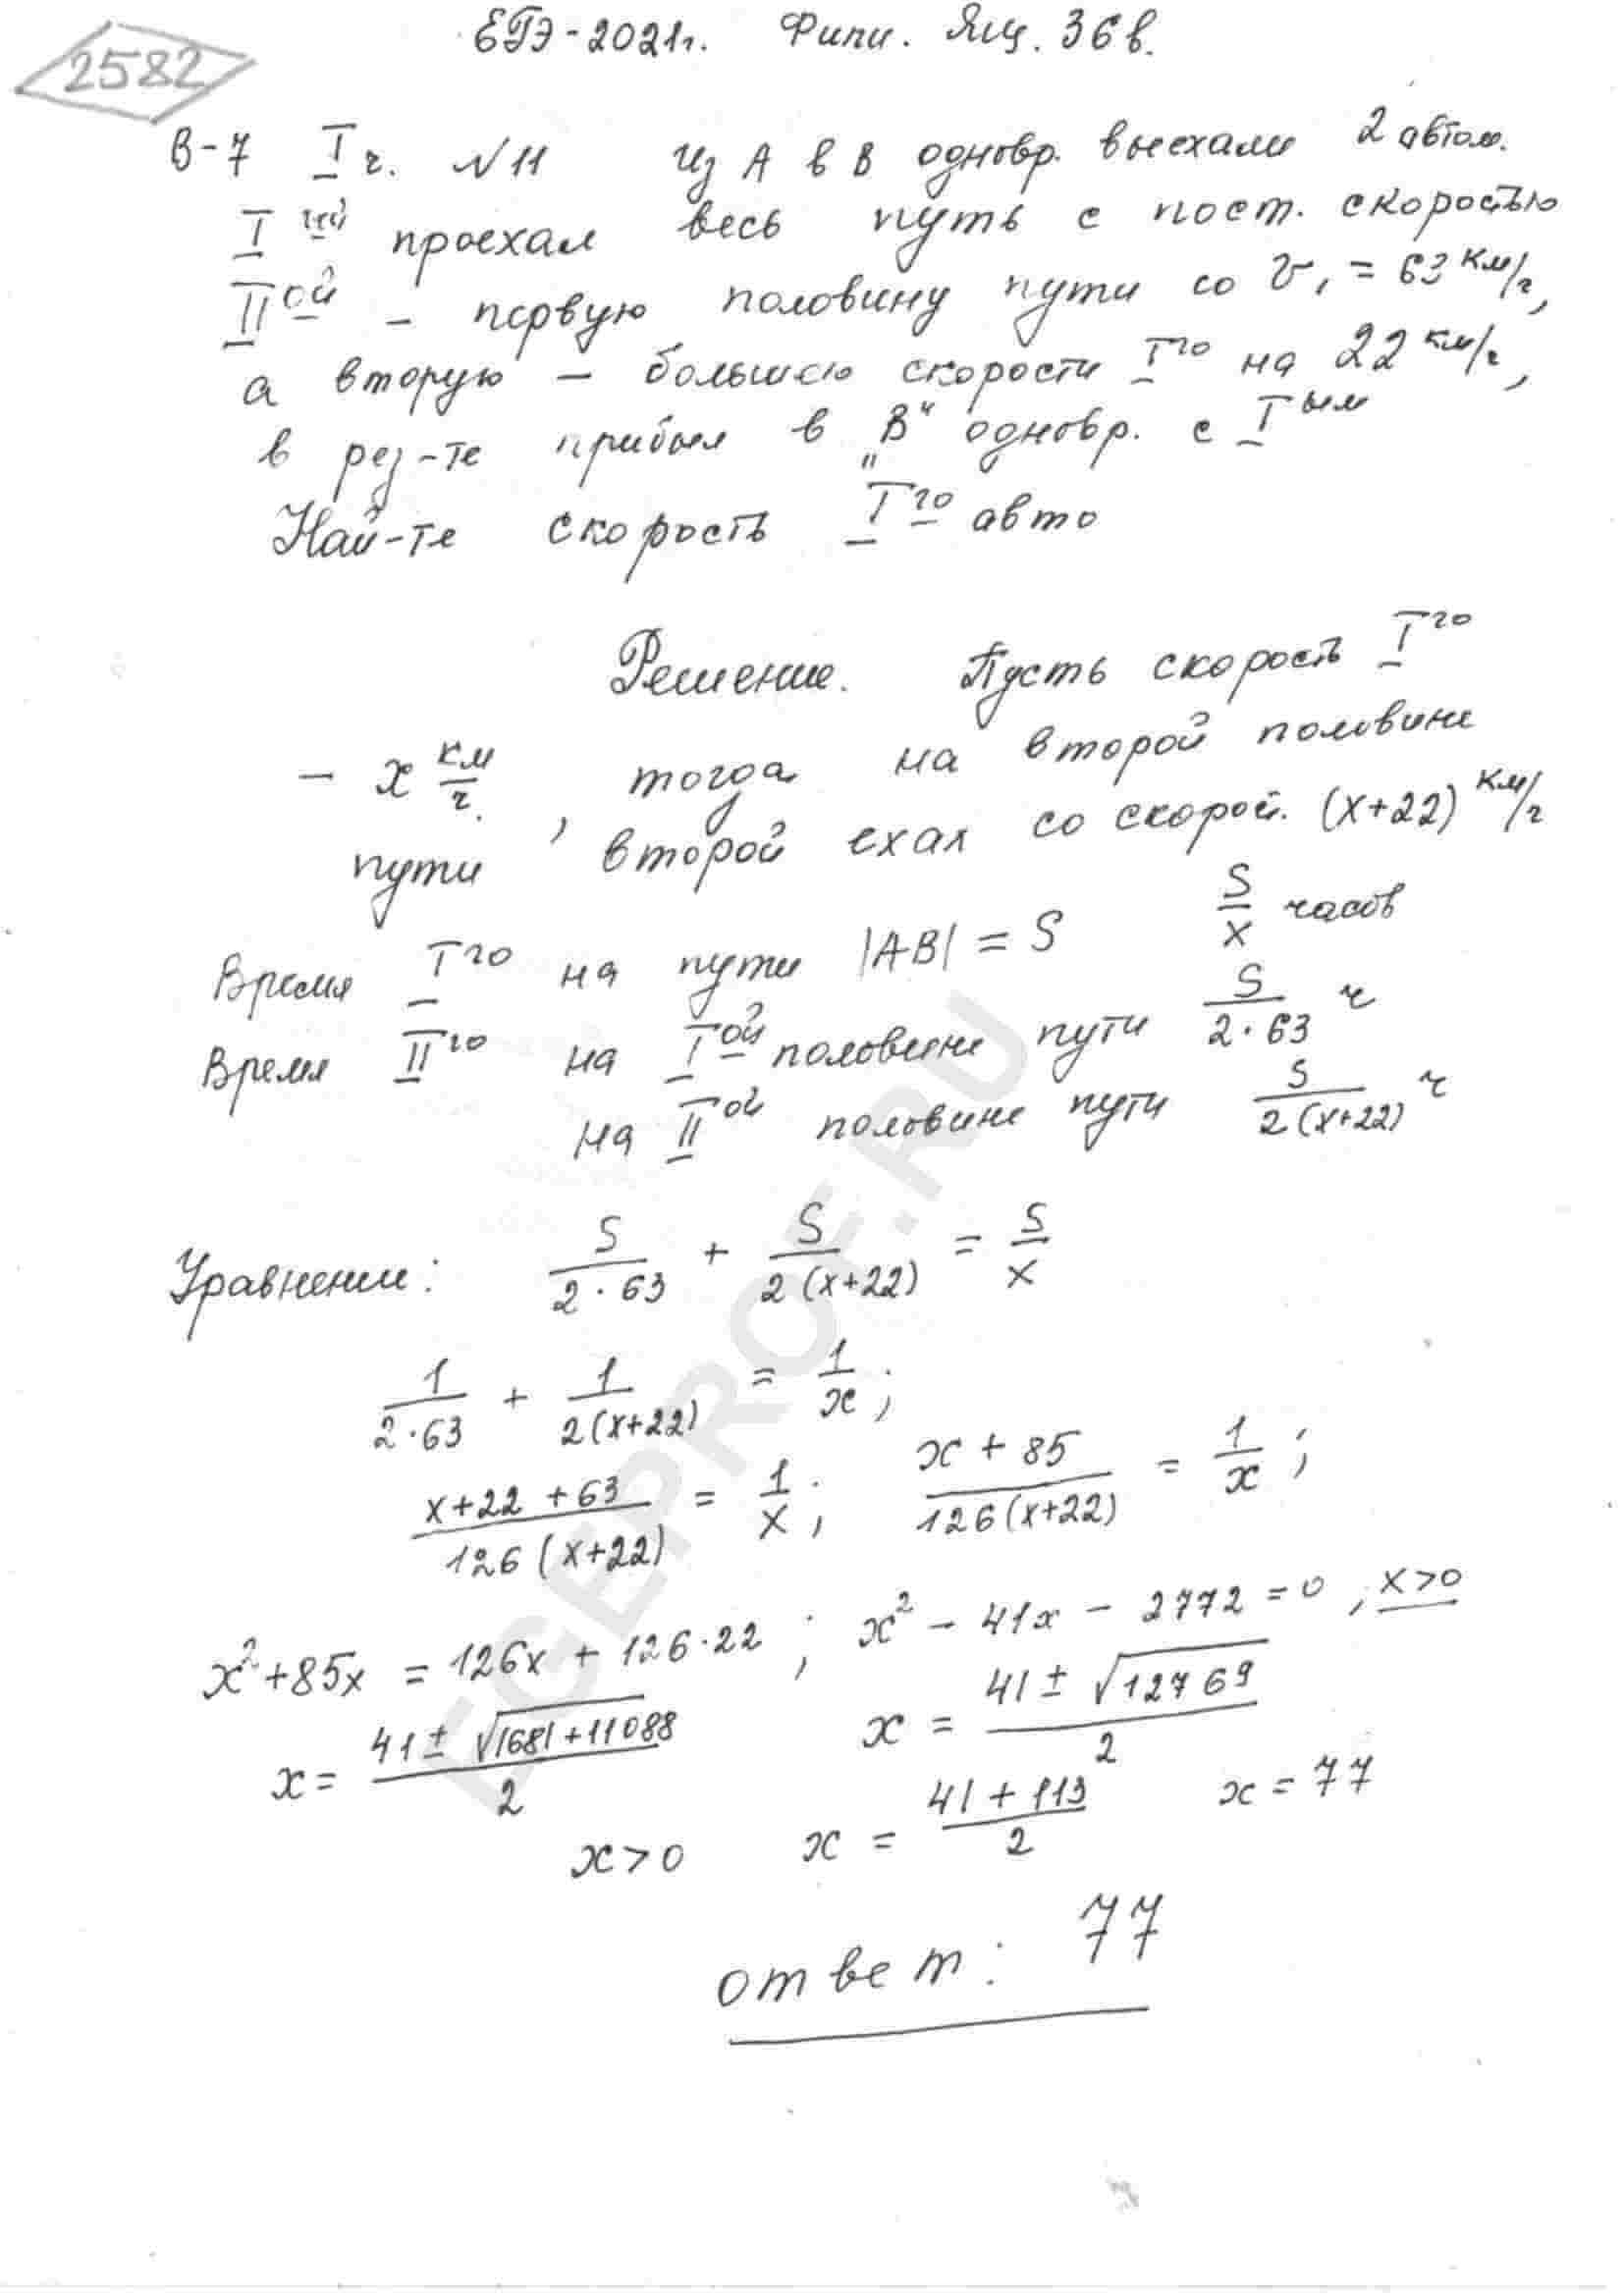 2582
ЕГЭ-2021г. Фипи. Ящ. 36в.
В-7 I ч. №11 Из А в В одновр. выехали 2 автом.
I ый проехал весь путь с пост. скоростью
II ой - первую половину пути со v₁ = 63 км/ч,
а вторую - большею скорости I го на 22 км/ч,
в рез-те прибыл в "В" одновр. с I ым
Най-те скорость I го авто
Решение. Пусть скорость I го
- x км/ч. , тогда на второй половине
пути второй ехал со скорой. (x+22) км/ч
Время I го на пути |AB| = S S/x часов
Время II го на I ой половине пути S/(2·63) ч
на II ой половине пути S/(2(x+22)) ч
Уравнение: S/(2·63) + S/(2(x+22)) = S/x
1/(2·63) + 1/(2(x+22)) = 1/x;
(x+22+63)/(126(x+22)) = 1/x; (x+85)/(126(x+22)) = 1/x;
x²+85x = 126x + 126·22; x² - 41x - 2772 = 0, x>0
x = (41 ± √(1681+11088))/2 x = (41 ± √12769)/2
x>0 x = (41+113)/2 x = 77
ответ: 77
EGEPROF.RU